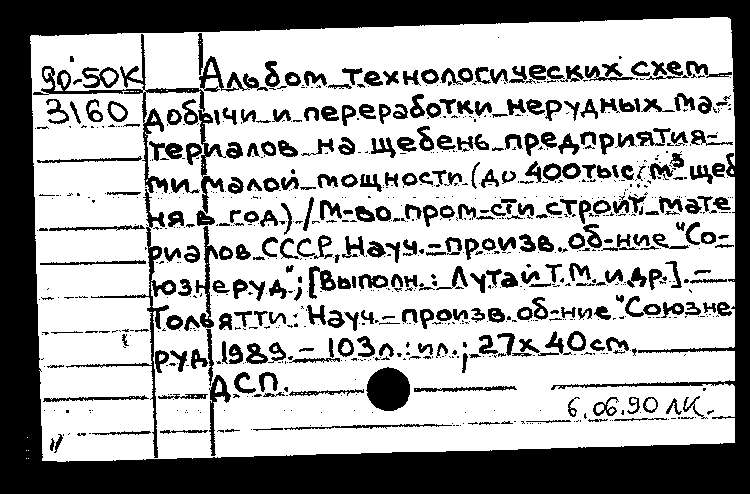 90-50К Альбом технологических схем
3160 добычи и переработки нерудных ма-
териалов на щебень предприятия-
ми малой мощности (до 400тыс. м³ щеб
ня в год) / М-во пром-сти строит. мате
риалов СССР, Науч.-произв. об-ние "Со-
юзнеруд"; [Выполн.: Лутай Т.М. и др.]. –
Тольятти: Науч.-произв. об-ние "Союзне
руд 1989. – 103л.: ил.; 27х40см.
ДСП.
6.06.90 ЛК.